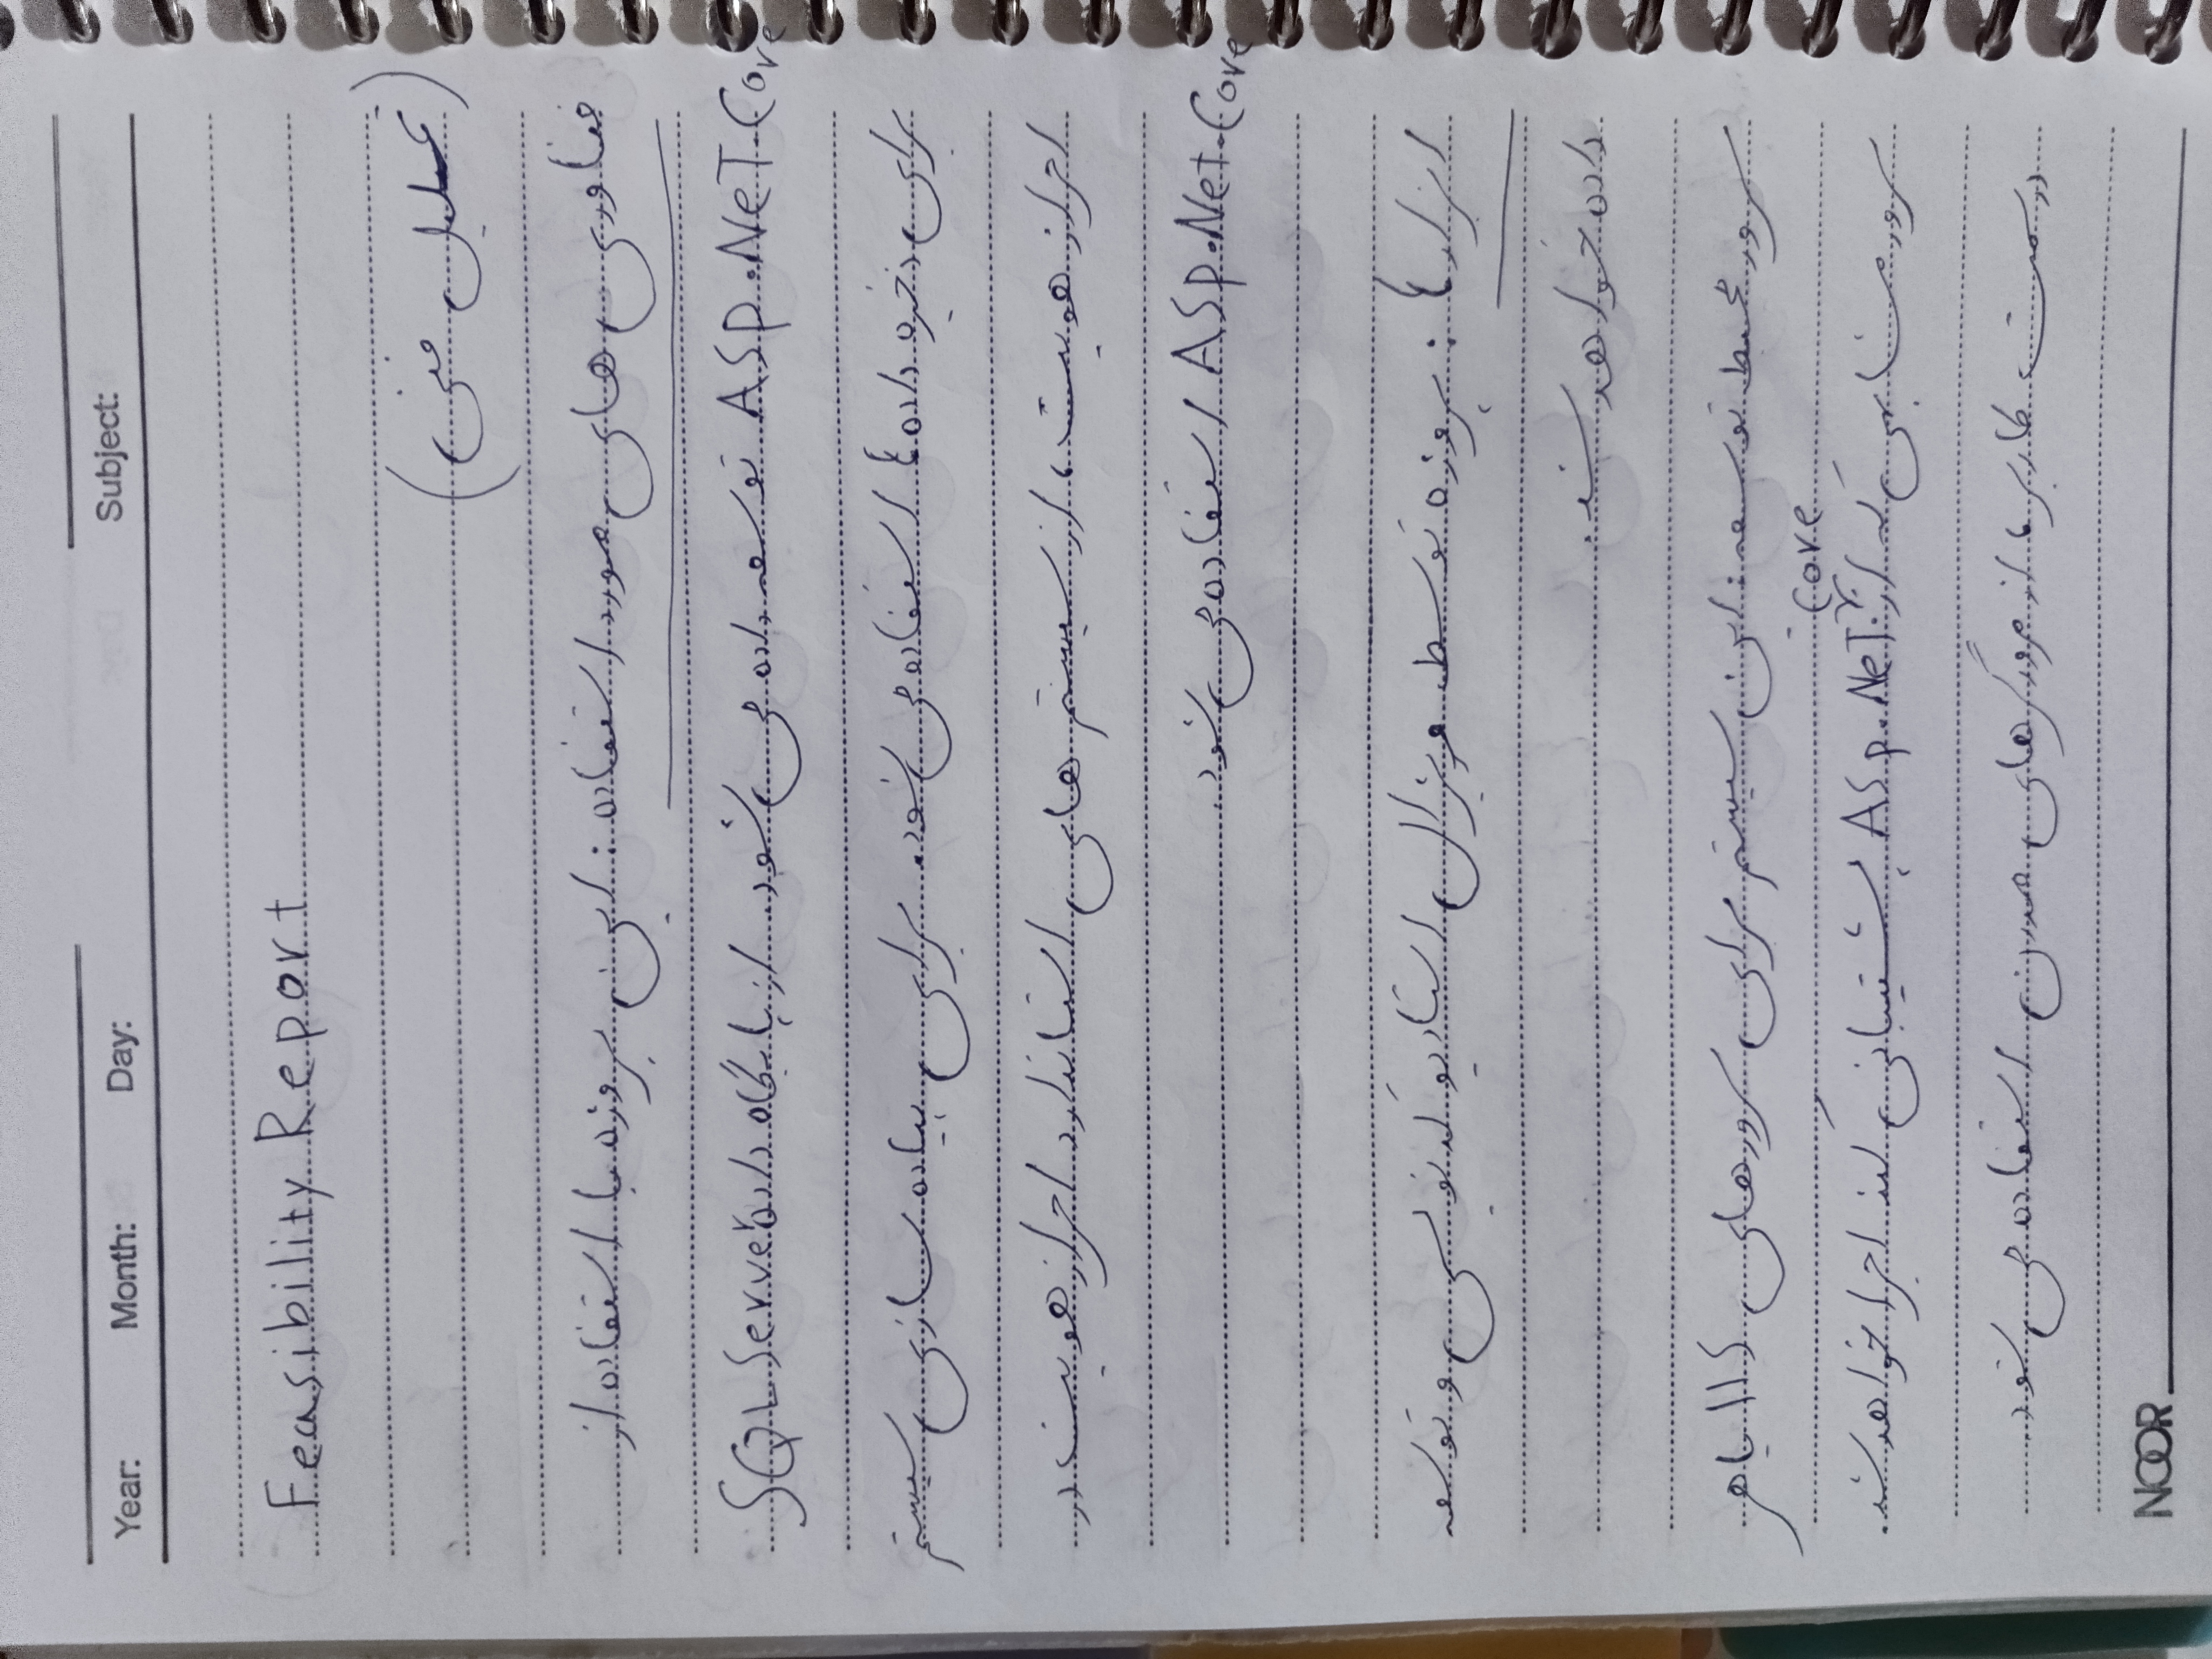 Year: Month: Day: Subject:
Feasibility Report
(تحلیل فنی)
فناوری های مورد استفاده : این پروژه با استفاده از
ASp.NeT.Core توسعه داده می شود. از پایگاه داده SQL Server
برای ذخیره داده ها استفاده می شود. برای پیاده سازی سیستم
احراز هویت، از سیستم های استاندارد احراز هویت در
ASp.Net.Core استفاده می شود.
ابزارها : پروژه توسط ویژال استادیو کدنویسی و توسعه
داده خواهد شد.
سرور محیط توسعه : این سیستم برای سرورهای IIS یا هر
core
سرور مشابهی که از ASp.NeT. پشتیبانی کند اجرا خواهد شد.
در سمت کاربر، از مرورگرهای مدرن استفاده می شود.
NOOR